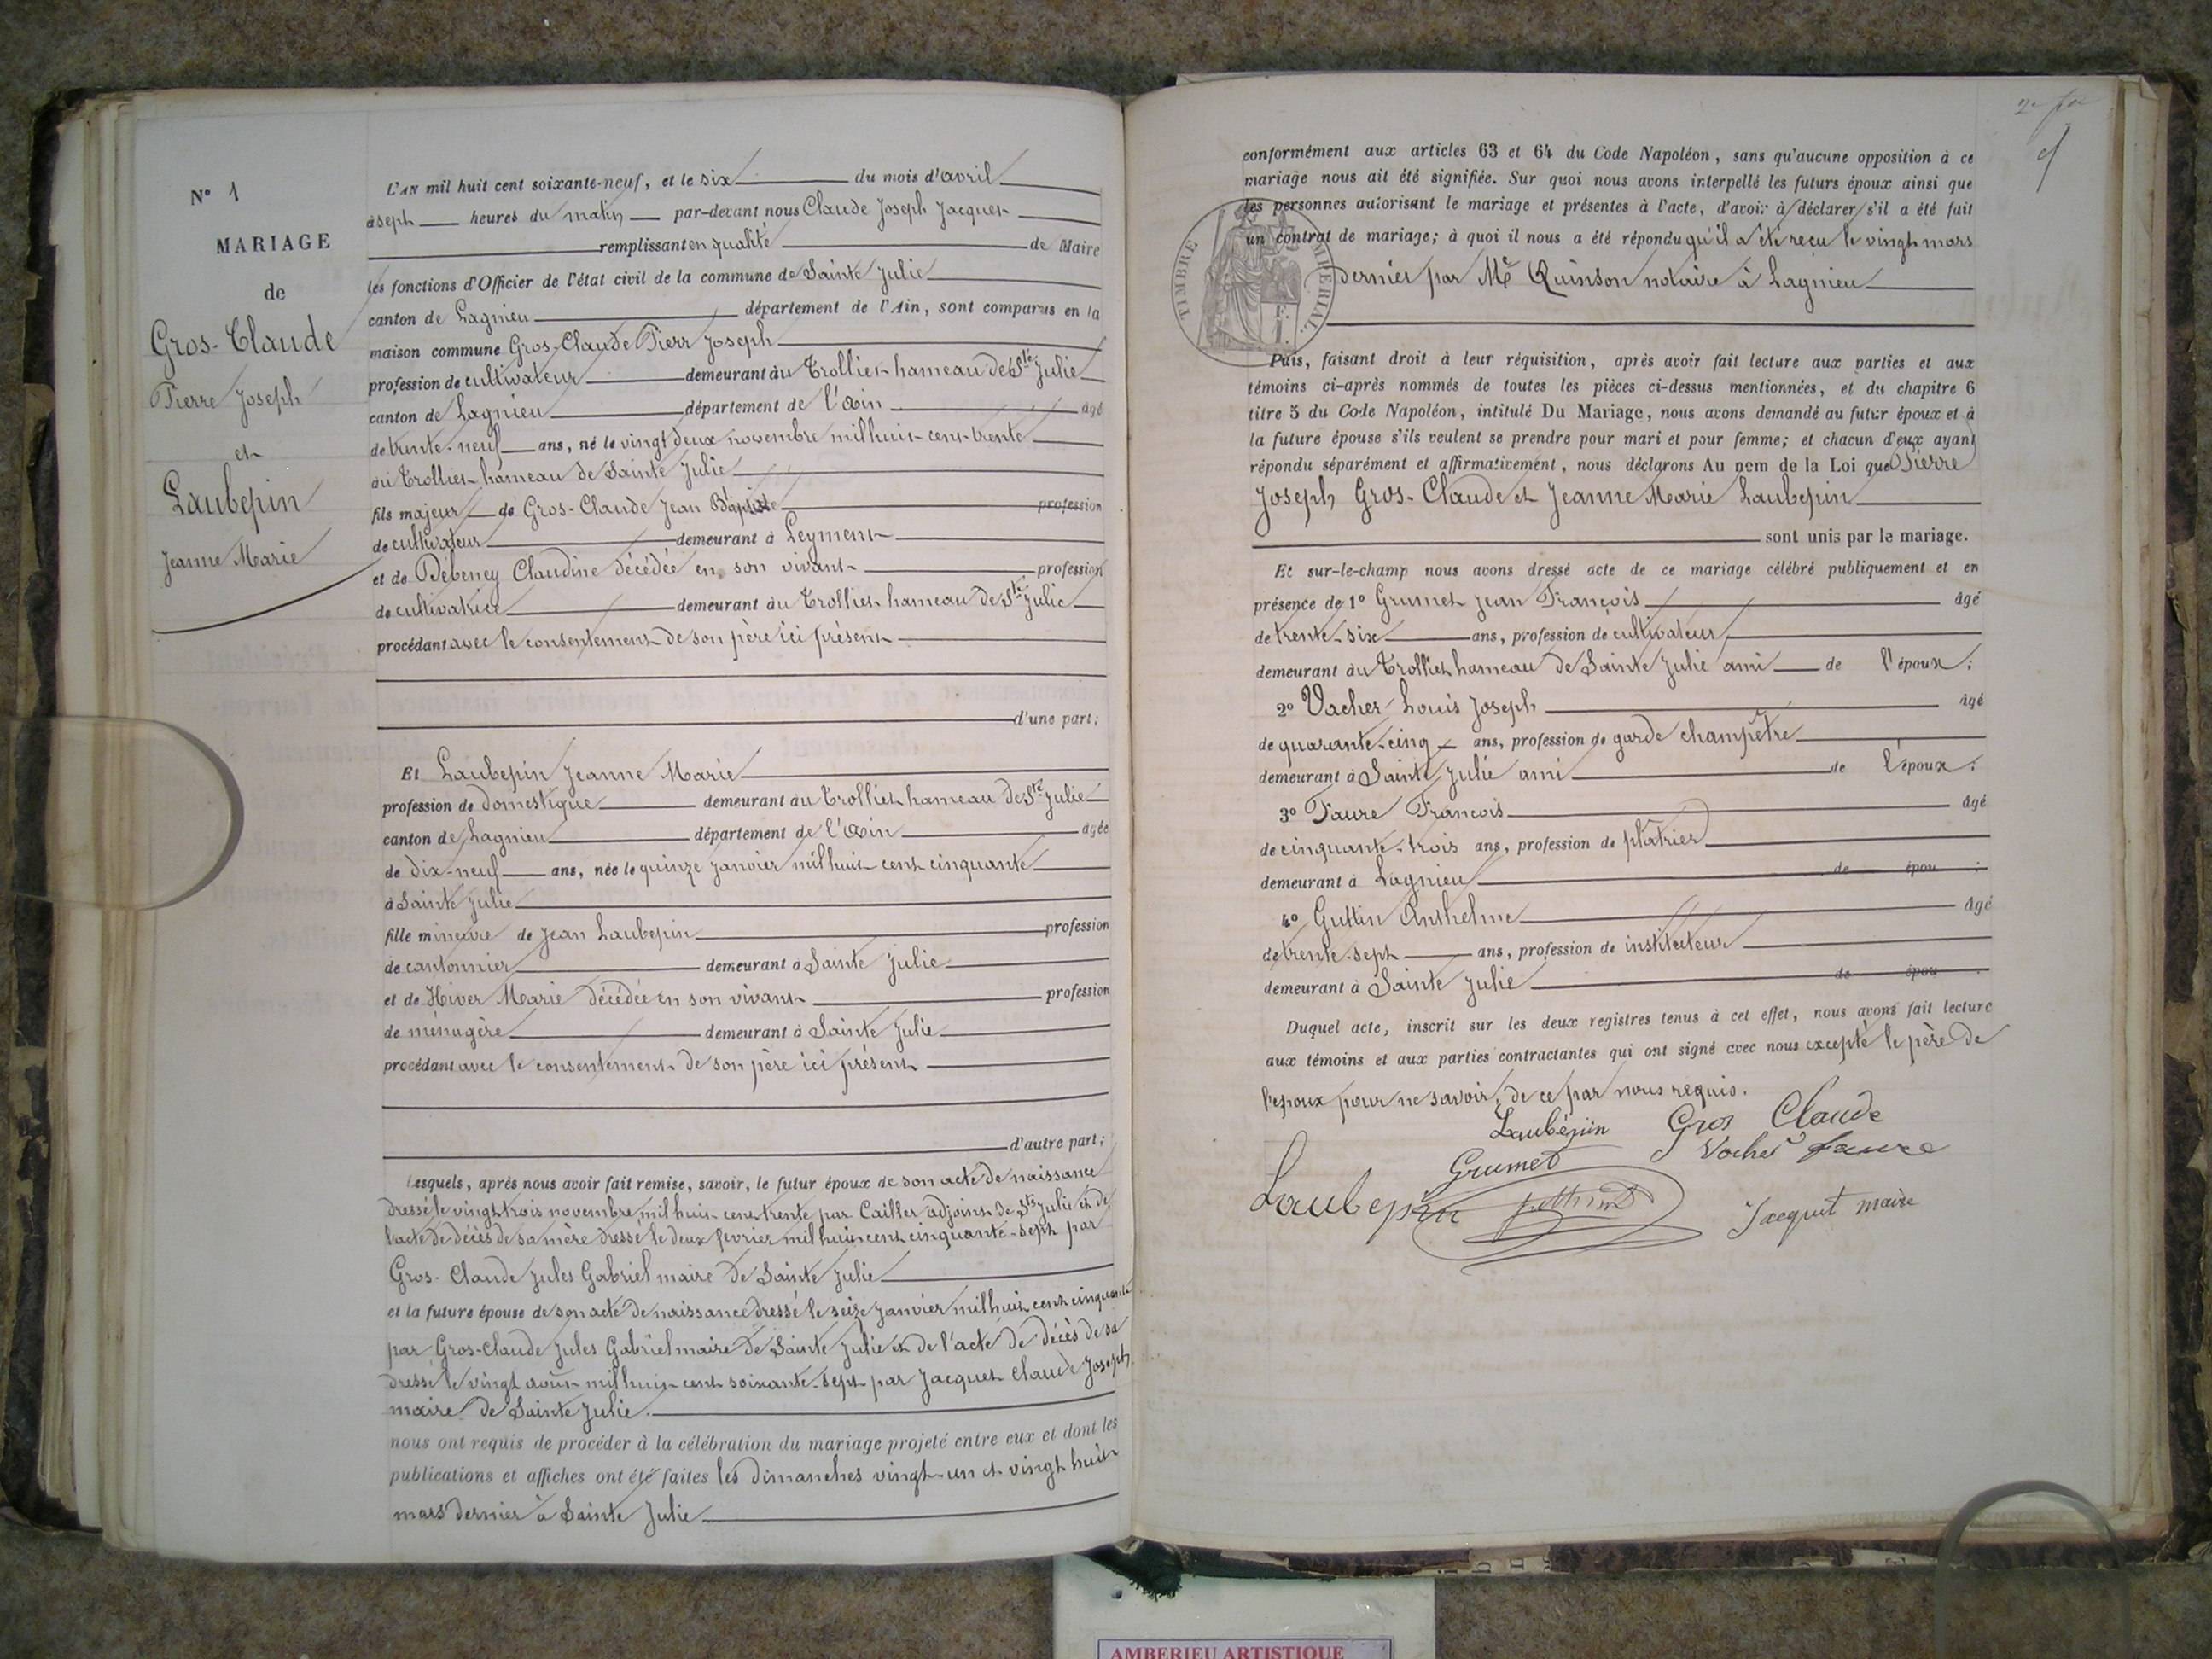 N° 1
MARIAGE
de
Gros-Claude
Pierre Joseph
et
Laubepin
Jeanne Marie
L'AN mil huit cent soixante-neuf, et le six du mois d'avril
à sept heures du matin par-devant nous Claude Joseph Jacquet
remplissant en qualité de Maire
les fonctions d'Officier de l'état civil de la commune de Sainte Julie
canton de Lagnieu département de l'Ain, sont comparus en la
maison commune Gros-Claude Pierr Joseph
profession de cultivateur demeurant au Trolliet hameau de Ste Julie
canton de Lagnieu département de l'Ain âgé
de trente-neuf ans, né le vingt deux novembre mil huit cent trente
au Trolliet hameau de Sainte Julie
fils majeur de Gros-Claude Jean Baptiste profession
de cultivateur demeurant à Leyment
et de Débeney Claudine décédée en son vivant profession
de cultivatrice demeurant au Trolliet hameau de Ste Julie
procédant avec le consentement de son père ici présent
d'une part;
Et Laubepin Jeanne Marie
profession de domestique demeurant au Trolliet hameau de Ste Julie
canton de Lagnieu département de l'Ain âgée
de dix-neuf ans, née le quinze janvier mil huit cent cinquante
à Sainte Julie
fille mineure de Jean Laubepin profession
de cantonnier demeurant à Sainte Julie
et de Hiver Marie décédée en son vivant profession
de ménagère demeurant à Sainte Julie
procédant avec le consentement de son père ici présent
d'autre part;
Lesquels, après nous avoir fait remise, savoir, le futur époux de son acte de naissance
dressé le vingt trois novembre mil huit cent trente par Cailler adjoint de Ste Julie et de
l'acte de décès de sa mère dressé le deux fevrier mil huit cent cinquante-sept par
Gros-Claude Jules Gabriel maire de Sainte Julie
et la future épouse de son acte de naissance dressé le seize janvier mil huit cent cinquante
par Gros-Claude Jules Gabriel maire de Sainte Julie et de l'acte de décès de sa
dressé le vingt août mil huit cent soixante-sept par Jacquet Claude Joseph
maire de Sainte Julie.
nous ont requis de procéder à la célébration du mariage projeté entre eux et dont les
publications et affiches ont été faites les dimanches vingt-un et vingt huit
mars dernier à Sainte Julie
conformément aux articles 63 et 64 du Code Napoléon, sans qu'aucune opposition à ce
mariage nous ait été signifiée. Sur quoi nous avons interpellé les futurs époux ainsi que
les personnes autorisant le mariage et présentes à l'acte, d'avoir à déclarer s'il a été fait
un contrat de mariage; à quoi il nous a été répondu qu'il a été reçu le vingt mars
dernier par Me Quinson notaire à Lagnieu
TIMBRE IMPÉRIAL.
Puis, faisant droit à leur réquisition, après avoir fait lecture aux parties et aux
témoins ci-après nommés de toutes les pièces ci-dessus mentionnées, et du chapitre 6
titre 5 du Code Napoléon, intitulé Du Mariage, nous avons demandé au futur époux et à
la future épouse s'ils veulent se prendre pour mari et pour femme; et chacun d'eux ayant
répondu séparément et affirmativement, nous déclarons Au nom de la Loi que Pierre
Joseph Gros-Claude et Jeanne Marie Laubepin
sont unis par le mariage.
Et sur-le-champ nous avons dressé acte de ce mariage célébré publiquement et en
présence de 1° Grumet Jean François âgé
de trente-six ans, profession de cultivateur
demeurant au Trolliet hameau de Sainte Julie ami de l'époux;
2° Vacher Louis Joseph âgé
de quarante-cinq ans, profession de garde champêtre
demeurant à Sainte Julie ami de l'époux;
3° Faure Francois âgé
de cinquante-trois ans, profession de plâtrier
demeurant à Lagnieu de épou ;
4° Guttin Anthelme âgé
de trente-sept ans, profession de instituteur
demeurant à Sainte Julie de épou .
Duquel acte, inscrit sur les deux registres tenus à cet effet, nous avons fait lecture
aux témoins et aux parties contractantes qui ont signé avec nous excepté le père de
l'époux pour ne savoir, de ce par nous requis.
Laubépin Gros Claude
Grumet Vacher faure
Laubepin Jacquet maire
AMBERIEU ARTISTIQUE